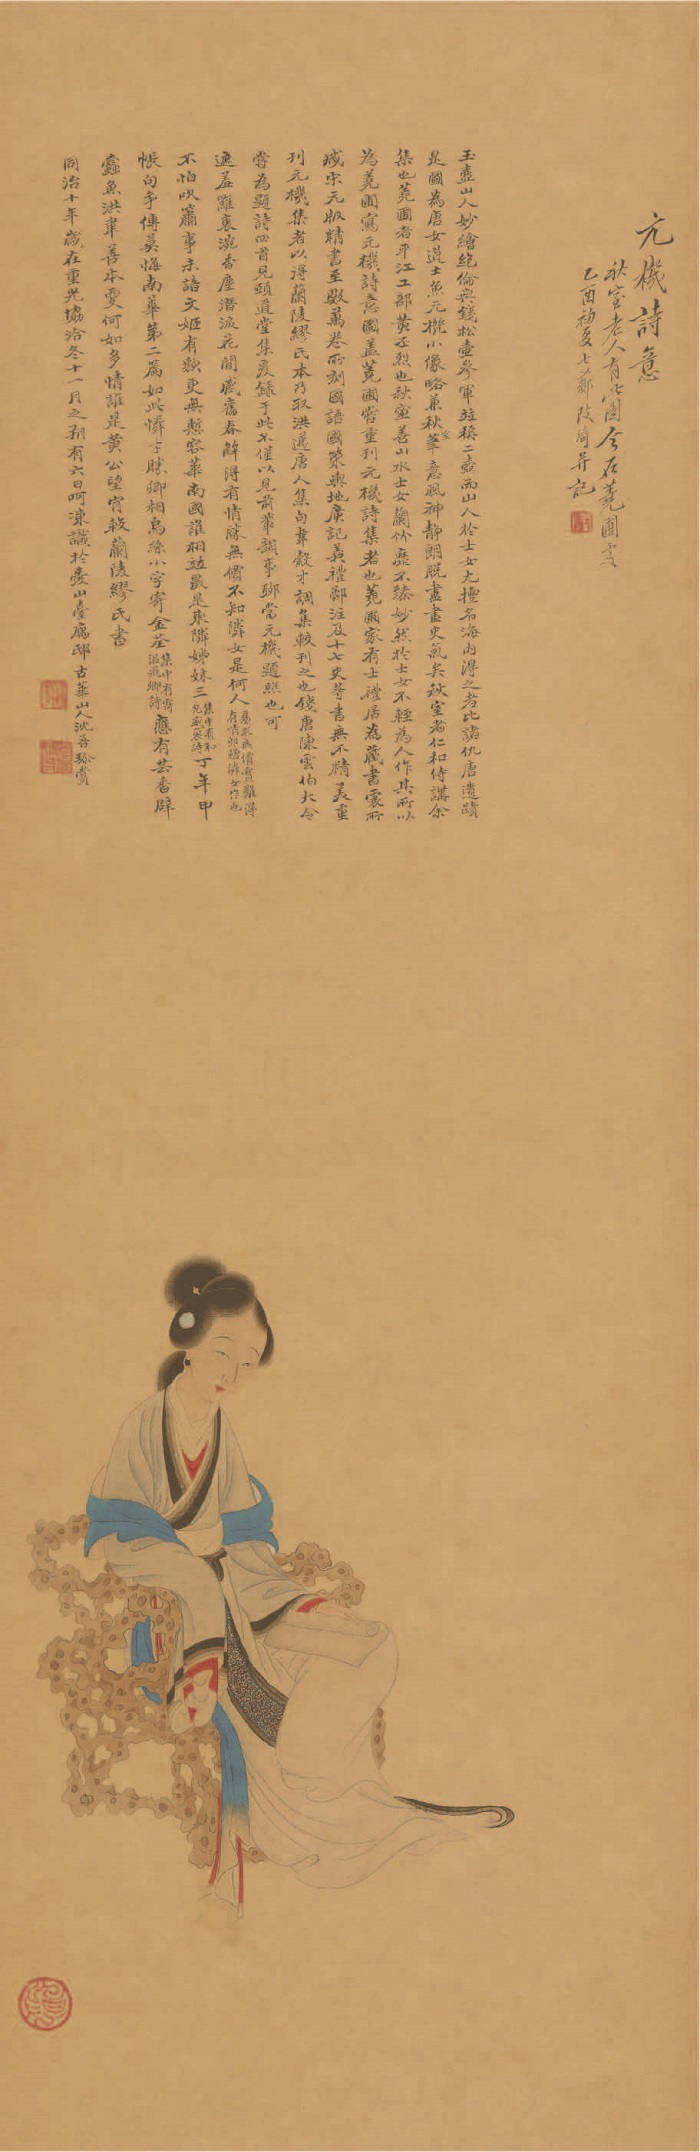 元機詩意
秋室老人有此圖今在蕘圃處
乙酉初夏七薌改琦并記
玉壺山人妙繪絶倫與錢松壺參軍竝稱二壺而山人於士女尤擅名海内得之者比諸仇唐遺蹟
是圖為唐女道士魚元機小像略兼秋室筆意風神静朗脱盡畫史氣矣秋室者仁和侍講余
集也蕘圃者平江工部黄丕烈也秋室善山水士女蘭竹靡不臻妙然於士女不輕為人作其所以
為蕘圃寫元機詩意圖蓋蕘圃嘗重刊元機詩集者也蕘圃家有士禮居為藏書處所
藏宋元版精書至數萬卷所刻國語國策輿地廣記義禮鄭注及十七史等書無不精美重
刊元機集者以得蘭陵繆氏本乃取洪邁唐人集句韋縠才調集較刊之也錢唐陳雲伯大令
嘗為題詩四首見頤道堂集爰録于此不僅以見前輩韻事即當元機題照也可
遮羞羅裏涴香塵潛淚花間感舊春解得有情勝無價不知隣女是何人易求無價寶難得有情郎贈隣女作也
不怕吹簫事未諧文姬有數更無愁容華南國誰相竝最是東隣姊妹三集中有和光威裒詩丁年甲
帳句手傳莫悔南華第二篇如此憐才勝卿相烏絲小字寄金荃集中有寄温飛卿詩應有芸香辟
蠹魚洪韋善本更何如多情誰是黄公望肯較蘭陵繆氏書
同治十年歲在重光協洽冬十一月之朔有六日呵凍識於壺山臺廨邸古華山人沈吾珍賞